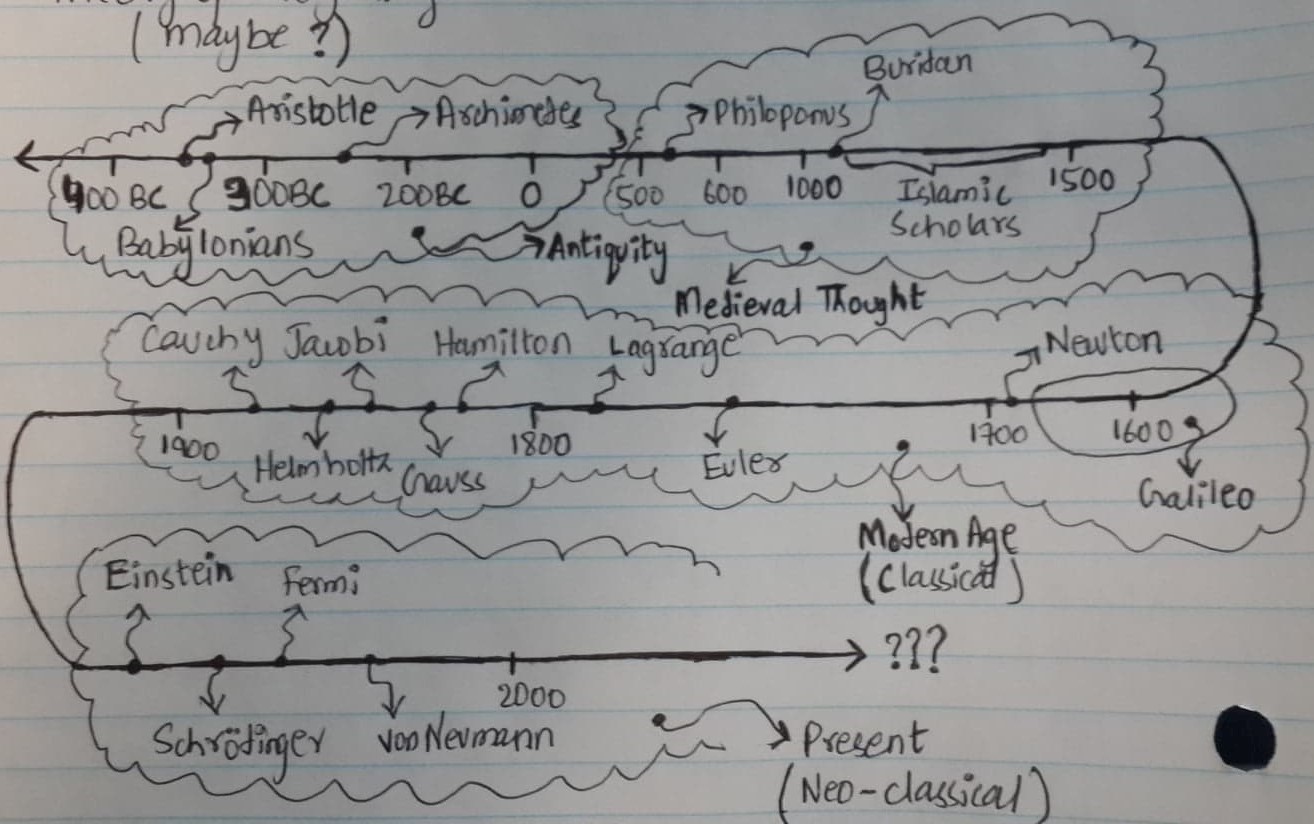 (maybe?)
Buridan
Aristotle Archimedes Philoponus
400 BC 300BC 200BC 0 500 600 1000 Islamic 1500
Scholars
Babylonians Antiquity
Medieval Thought
Cauchy Jacobi Hamilton Lagrange Newton
1900 1800 1700 1600
Helmholtz Gauss Euler Galileo
Modern Age
(Classical)
Einstein Fermi
???
2000
Schrödinger von Neumann Present
(Neo-classical)